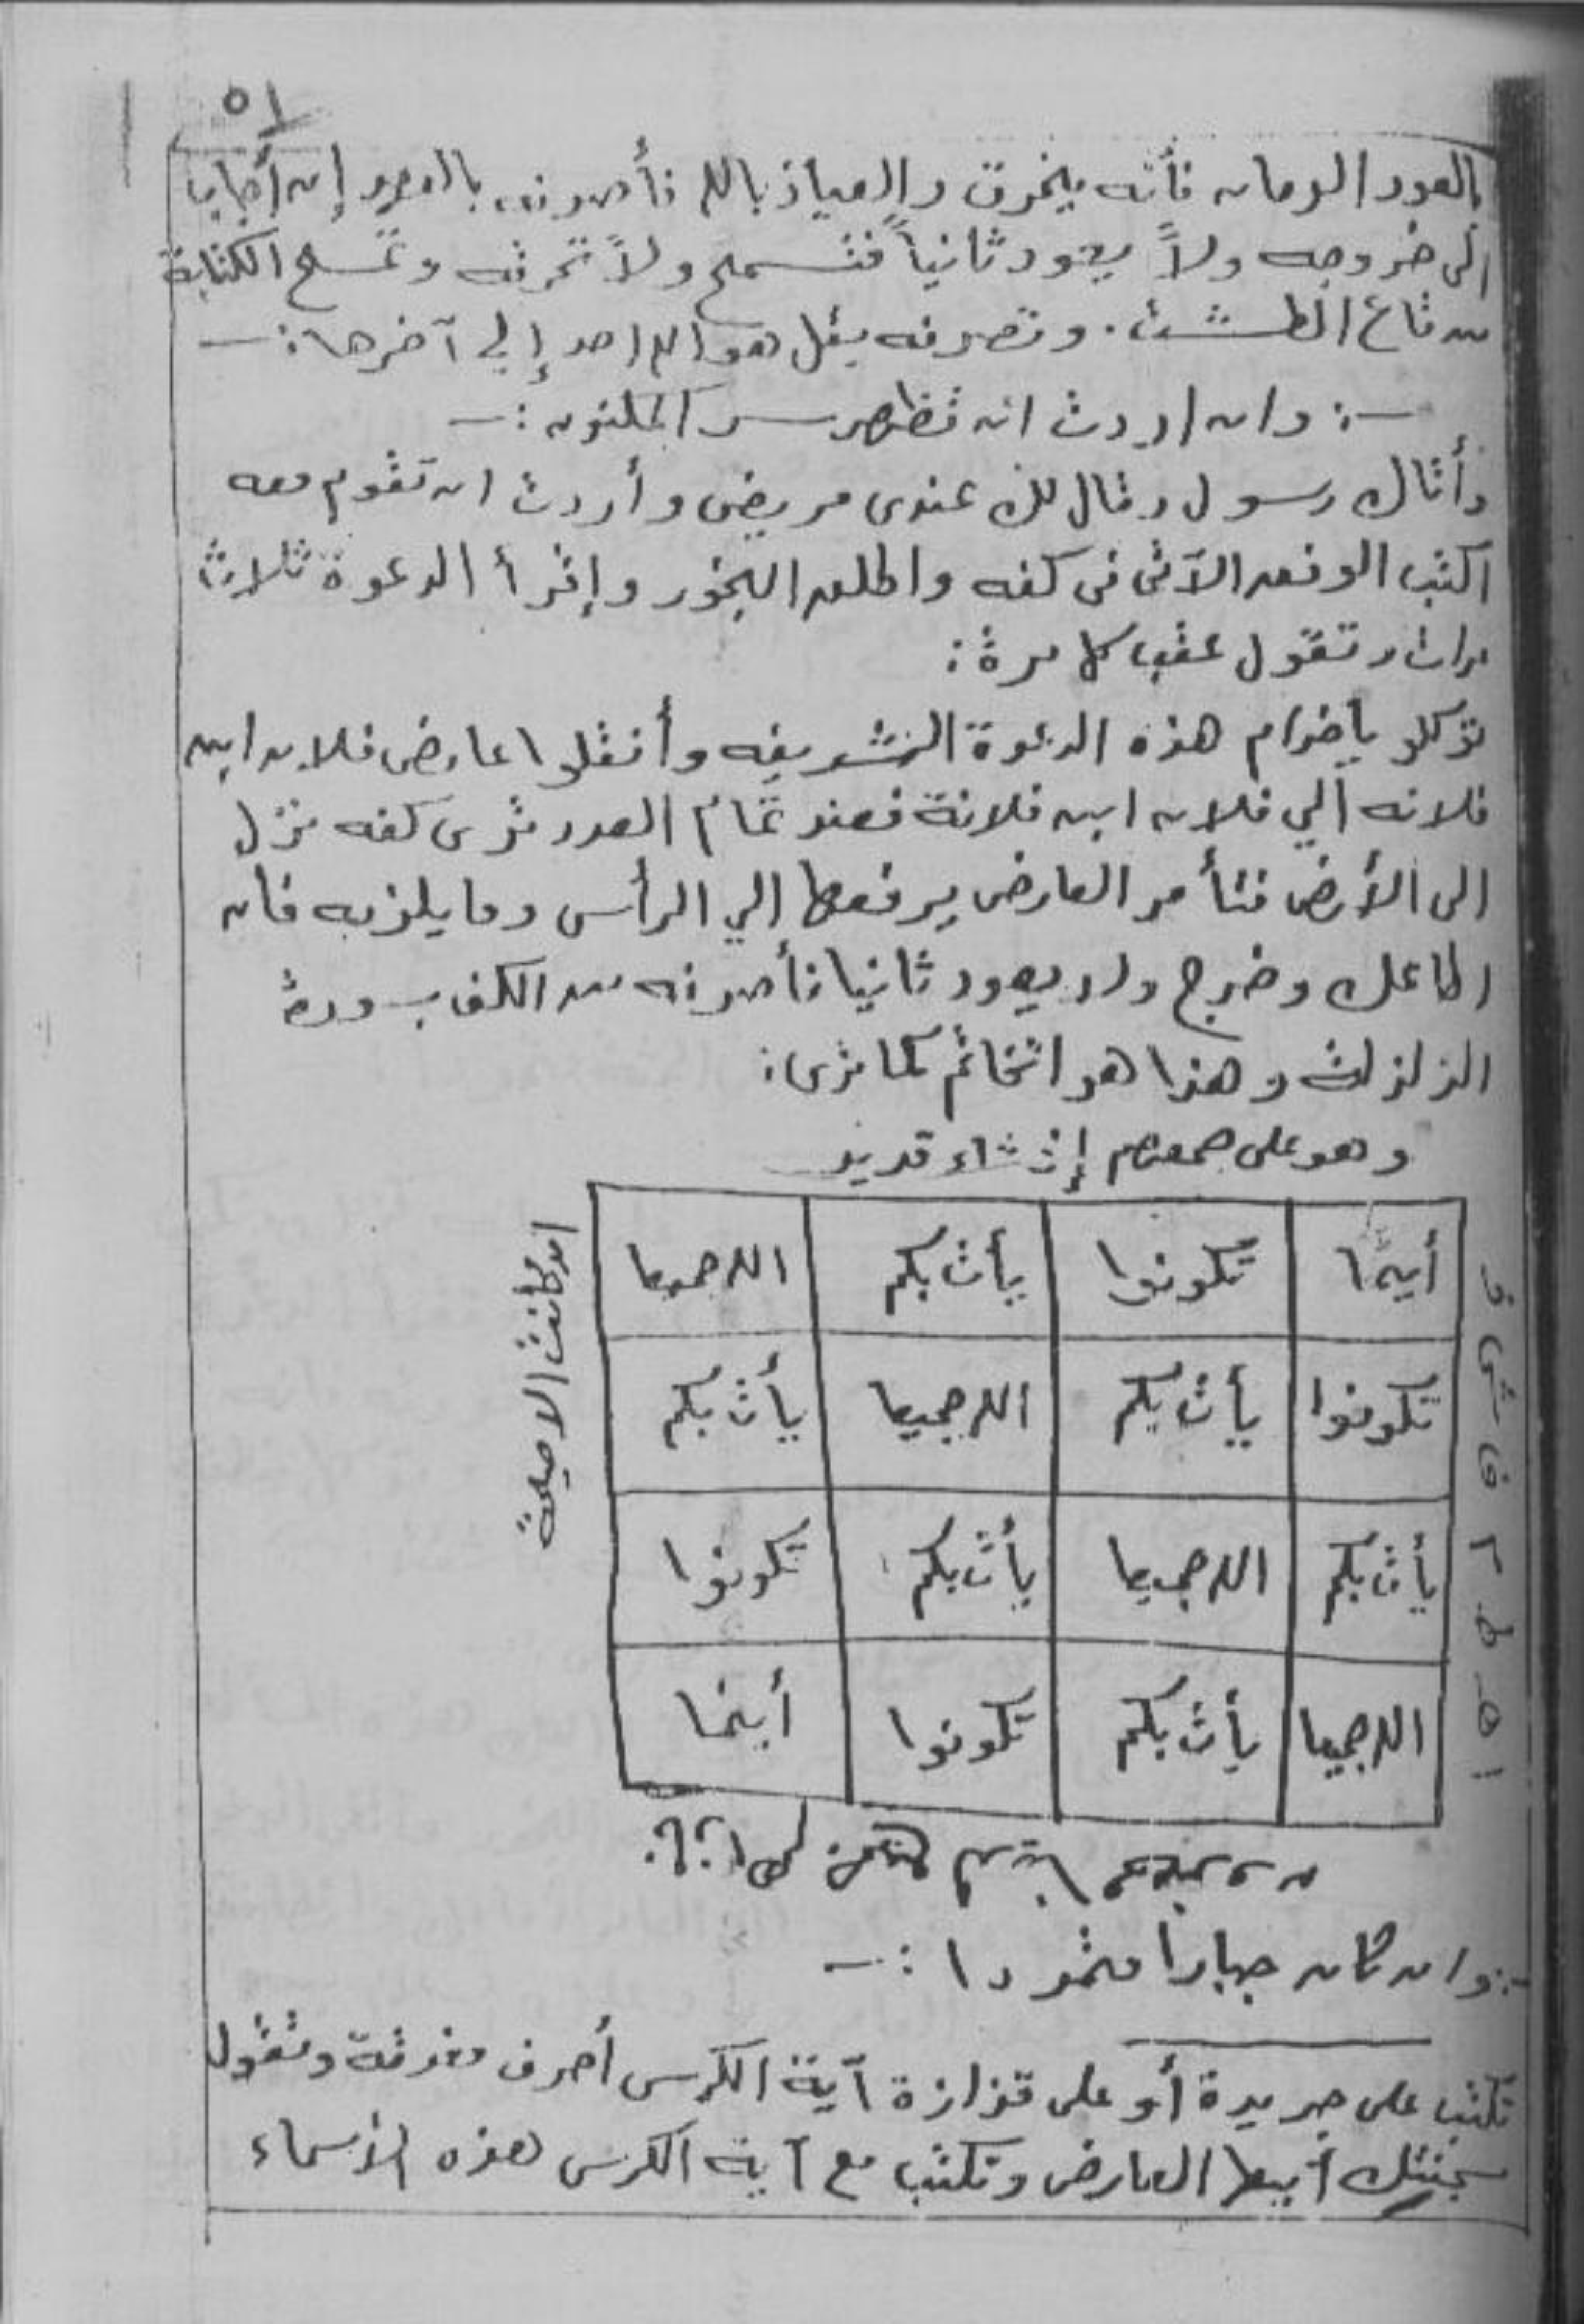 ٥١
بالعود الرمان فأنه يخرق والعياذ بالله فأصرفه بالعهد إن أجاب
الى خروجه ولا يعود ثانياً فتسمح ولا تحرقه وتمسح الكتابة
من قاع الطشت . وتصرفه بقل هو الله احد إلي آخرها :ـ
ـ: وان اردت ان تظهر سر المكنون :ـ
وأتاك رسول وقال لك عندى مريض وأردت ان تقوم معه
اكتب الوفق الآتى فى كفه واطلق البخور وإقرأ الدعوة ثلاث
مرات وتقول عقب كل مرة :
توكلو ياخدام هذه الدعوة الشريفه وأنقلوا عارض فلان ابن
فلانه الي فلان ابن فلانة فعند تمام العدد ترى كفه نزل
الى الأرض فتأمر العارض يرفعها إلي الرأس وما يلزمه فأن
اطاعك وخرج ولا يعود ثانيا فأصرفه من الكف بسورة
الزلزلة وهذا هو الخاتم كما ترى :
وهو على جمعهم إذ شاء قدير
أينما تكونوا يأت بكم الله جميعا
تكونوا يأت بكم الله جميعا يأت بكم
يأت بكم الله جميعا يأت بكم تكونوا
الله جميعا يأت بكم تكونوا أينما
ان كانت الا صيحة
ـ: وان كان جبارا متمردا :ـ
تكتب على جريدة أو على قزازة آية الكرسى أحرف مفرقة وتقول
سجنتك أيها العارض وتكتب مع آية الكرسى هذه الأسماء